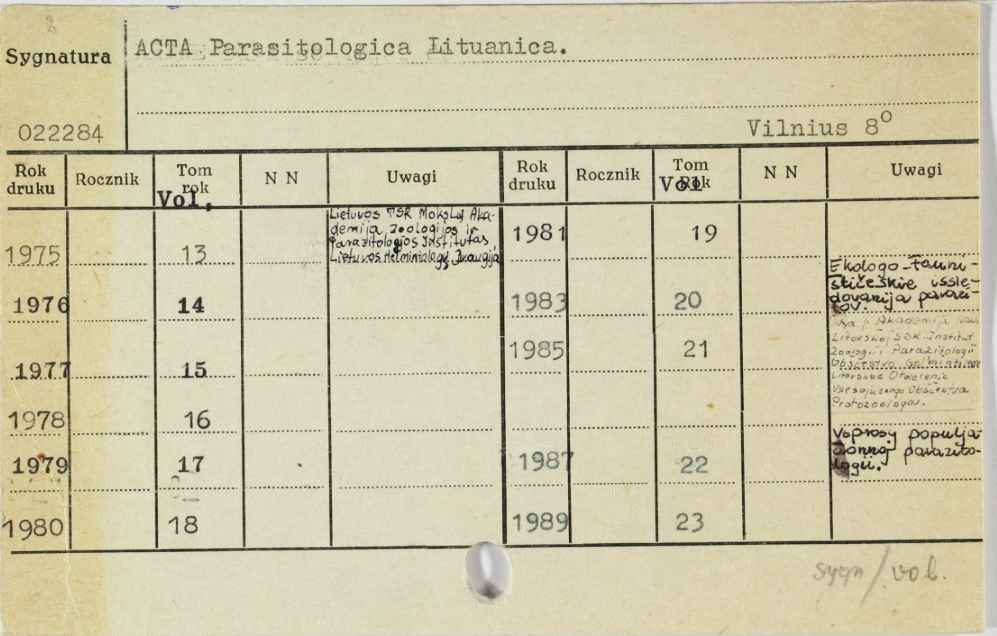 Sygnatura
ACTA Parasitologica Lituanica.
022284
Vilnius 8°
Rok druku Rocznik Tom rok Vol. N N Uwagi Rok druku Rocznik Tom Rok Vol N N Uwagi
1975 13 Lietuvos TSR Mokslų Aka-
demija Zoologijos ir
Parazitologijos Institutas,
Lietuvos
1976 14
1977 15
1978 16
1979 17
1980 18
1981 19
1983 20 Ekologo-fauni-
stičeskie issle-
dovanija parazi-
tov.
1985 21 Akademija
Litovskoj SSR Institut
Zoologii i Parazitologii
Obščestvo
Vsesojuznogo Obščestva
Protozoologov.
1987 22 Voprosy populja-
cionnoj parazito-
logii.
1989 23
sygn/vol.